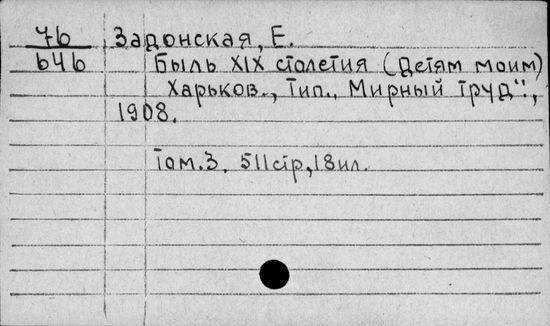 76 Задонская, Е.
646 Быль XIX столетия (Детям моим)
Харьков., Тип., Мирный Труд":,
1908.
Том.3. 511стр,18ил.